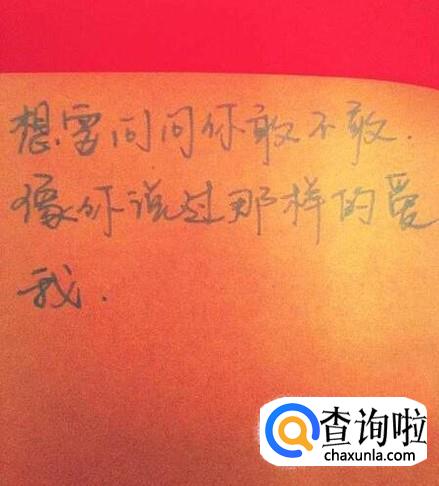 想要问问你敢不敢.
像你说过那样的爱
我.
查询啦
chaxunla.com